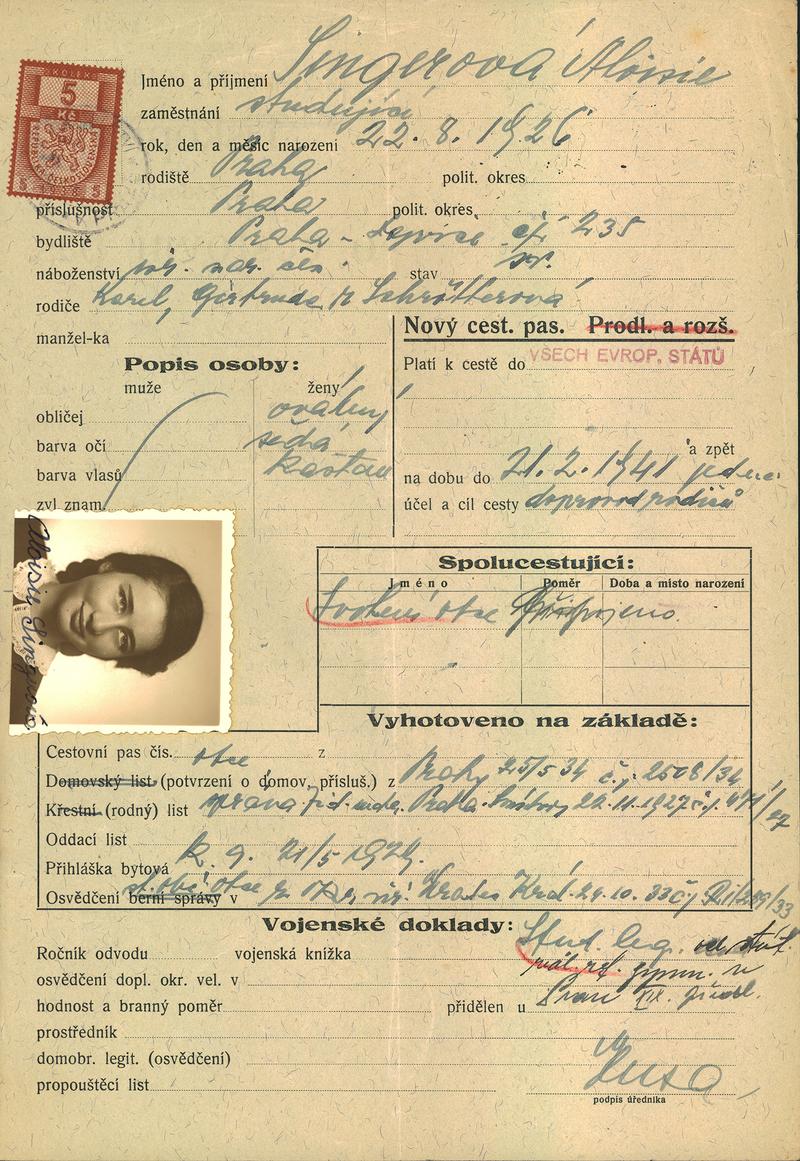 KOLEK
5
Kč
REPUBLIKA ČESKOSLOVENSKÁ
5 5
Jméno a příjmení Singerová Aloisie
zaměstnání studující
rok, den a měsíc narození 22. 8. 1926
rodiště Praha polit. okres
příslušnost Praha polit. okres
bydliště Praha - čp. 235
náboženství stav
rodiče Karel, Gertruda r. Schrötterová
manžel-ka
Nový cest. pas. Prodl. a rozš.
Platí k cestě do VŠECH EVROP. STÁTŮ
a zpět
na dobu do 21. 2. 1941
účel a cíl cesty doprovod rodičů
Popis osoby:
muže ženy
obličej oválný
barva očí šedá
barva vlasů kaštan
zvl. znam.
Aloisie Singerová
Spolucestující:
Jméno Poměr Doba a místo narození
otce připojeno.
Vyhotoveno na základě:
Cestovní pas čís. otce z
Domovský list (potvrzení o domov. přísluš.) z Prahy 25/5 34 č.j. 2508/34
Křestní (rodný) list Praha 22.11.1927 č.j.
Oddací list
Přihláška bytová 21/5 1929.
Osvědčení berní správy v st. obč. otce Hradec Král. 24.10.33 č.j.
Vojenské doklady:
Stud. leg. od stát.
reál. gymn. v
Praze XIX.
Ročník odvodu vojenská knížka
osvědčení dopl. okr. vel. v
hodnost a branný poměr přidělen u
prostředník
domobr. legit. (osvědčení)
propouštěcí list
podpis úředníka